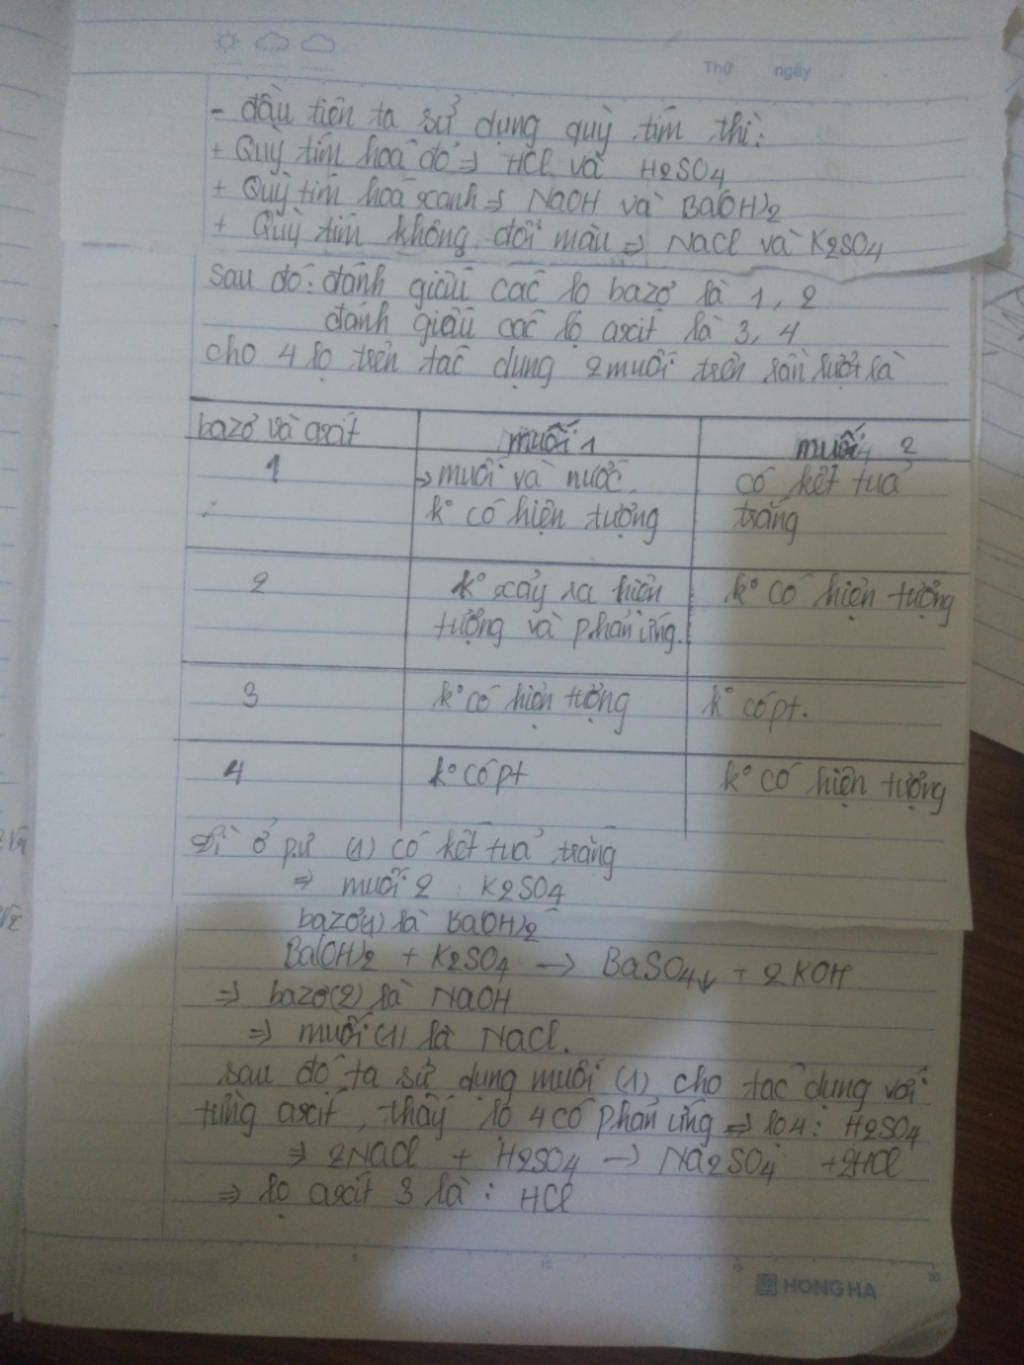 Thứ ngày
- đầu tiên ta sử dụng quỳ tím thì:
+ Quỳ tím hoá đỏ => HCl và H2SO4
+ Quỳ tím hoá xanh => NaOH và Ba(OH)2
+ Quỳ tím không đổi màu => NaCl và K2SO4
sau đó: đánh giấu các lọ bazơ là 1, 2
đánh giấu các lọ axit là 3, 4
cho 4 lọ trên tác dụng 2 muối trên lần lượt là
bazơ và axit muối 1 muối 2
1 → muối và nước. có kết tủa
k° có hiện tượng trắng
2 k° xảy ra hiện k° có hiện tượng
tượng và phản ứng.
3 k° có hiện tượng k° có pt.
4 k° có pt k° có hiện tượng
Vì ở p.ư (1) có kết tủa trắng
=> muối 2 : K2SO4
bazơ(1) là Ba(OH)2
Ba(OH)2 + K2SO4 → BaSO4↓ + 2KOH
=> bazơ(2) là NaOH
=> muối (1) là NaCl.
sau đó ta sử dụng muối (1) cho tác dụng với
từng axit, thấy lọ 4 có phản ứng => lọ 4: H2SO4
=> 2NaCl + H2SO4 → Na2SO4 + 2HCl
=> lọ axit 3 là : HCl
HONG HA